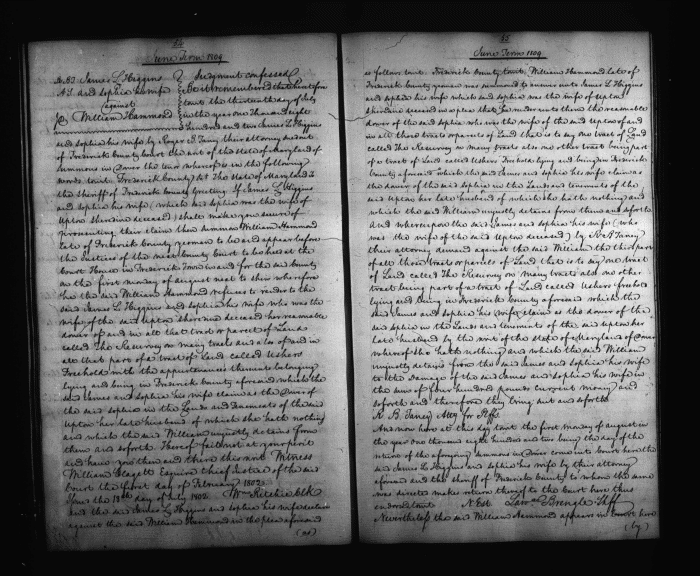 June Term 1809
James L Higgins } Judgment confessed
and Sophia his wife } Be it remembered that heretofore
against } towit the thirteenth day of July
William Hammond } in the year one thousand eight
hundred and two James L Higgins
and Sophia his wife by Roger B Taney their attorney sued out
of Frederick County Court the writ of the State of Maryland of
summons in Dower the tenor whereof is in the following
words towit Frederick County Sct The State of Maryland to
the Sheriff of Frederick County Greeting If James L Higgins
and Sophia his wife (which said Sophia was the wife of
Upton Sheredine deceased) shall make you secure of
prosecuting their claim then summon William Hammond
late of Frederick County yeoman to be and appear before
the Justices of the next County Court to be held at the
Court House in Frederick Town in and for the said County
on the first monday of August next to shew wherefore
he the said William Hammond refuses to render to the
said James L Higgins and Sophia his wife who was the
wife of the said Upton Sheredine deceased her reasonable
dower of and in all that tract or parcel of Land
called The Resurvey on many tracts and also of and in
all that part of a tract of Land called Ushers
Freehold with the appurtenances thereunto belonging
lying and being in Frederick County aforesaid which the
said James and Sophia his wife claim as the Dower of
the said Sophia in the Lands and Tenements of the said
Upton her late husband of which she hath nothing
and which the said William unjustly detains from
them and soforth Hereof fail not at your peril
and have you then and there this writ Witness
William Claggett Esquire Chief Justice of the said
Court the first day of February 1802
Issued the 13th day of July 1802. Wm Ritchie Clk
And the said James L Higgins and Sophia his wife declare
against the said William Hammond in the plea aforesaid
(as)
June Term 1809
as follows towit. Frederick County towit. William Hammond late of
Frederick County yeoman was summoned to answer unto James L Higgins
and Sophia his wife which said Sophia was the wife of Upton
Sheredine deceased in a plea that he render unto them the reasonable
dower of the said Sophia who was the wife of the said Upton of and
in all those tracts or parcels of Land that is to say one tract of Land
called The Resurvey on many tracts also one other tract being part
of a tract of Land called Ushers Freehold lying and being in Frederick
County aforesaid which the said James and Sophia his wife claim as
the dower of the said Sophia in the Lands and tenements of the
said Upton her late husband of which she hath nothing and
which the said William unjustly detains from them and soforth
And whereupon the said James and Sophia his wife (who
was the wife of the said Upton deceased) by R B Taney
their attorney demand against the said William the third part
of all those tracts or parcels of Land that is to say one tract
of Land called The Resurvey on many tracts also one other
tract being part of a tract of Land called Ushers freehold
lying and being in Frederick County aforesaid which the
said James and Sophia his wife claim as the dower of the
said Sophia in the Lands and tenements of the said Upton her
late husband by the writ of the State of Maryland of Dower
whereof she hath nothing and which the said William
unjustly detains from the said James and Sophia his wife
to the damage of the said James and Sophia his wife in
the sum of four hundred pounds current money and
soforth and therefore they bring suit and soforth
R. B. Taney Atty for Plffs
And now here at this day towit the first monday of august in
the year one thousand eight hundred and two being the day of the
return of the aforesaid summons in Dower come into Court here the
said James L Higgins and Sophia his wife by their attorney
aforesaid and the Sheriff of Frederick County to whom the same
was directed makes return thereof to the Court here thus
endorsed towit N. Est Lawce Brengle Shff
Nevertheless the said William Hammond appears in Court here
(by)